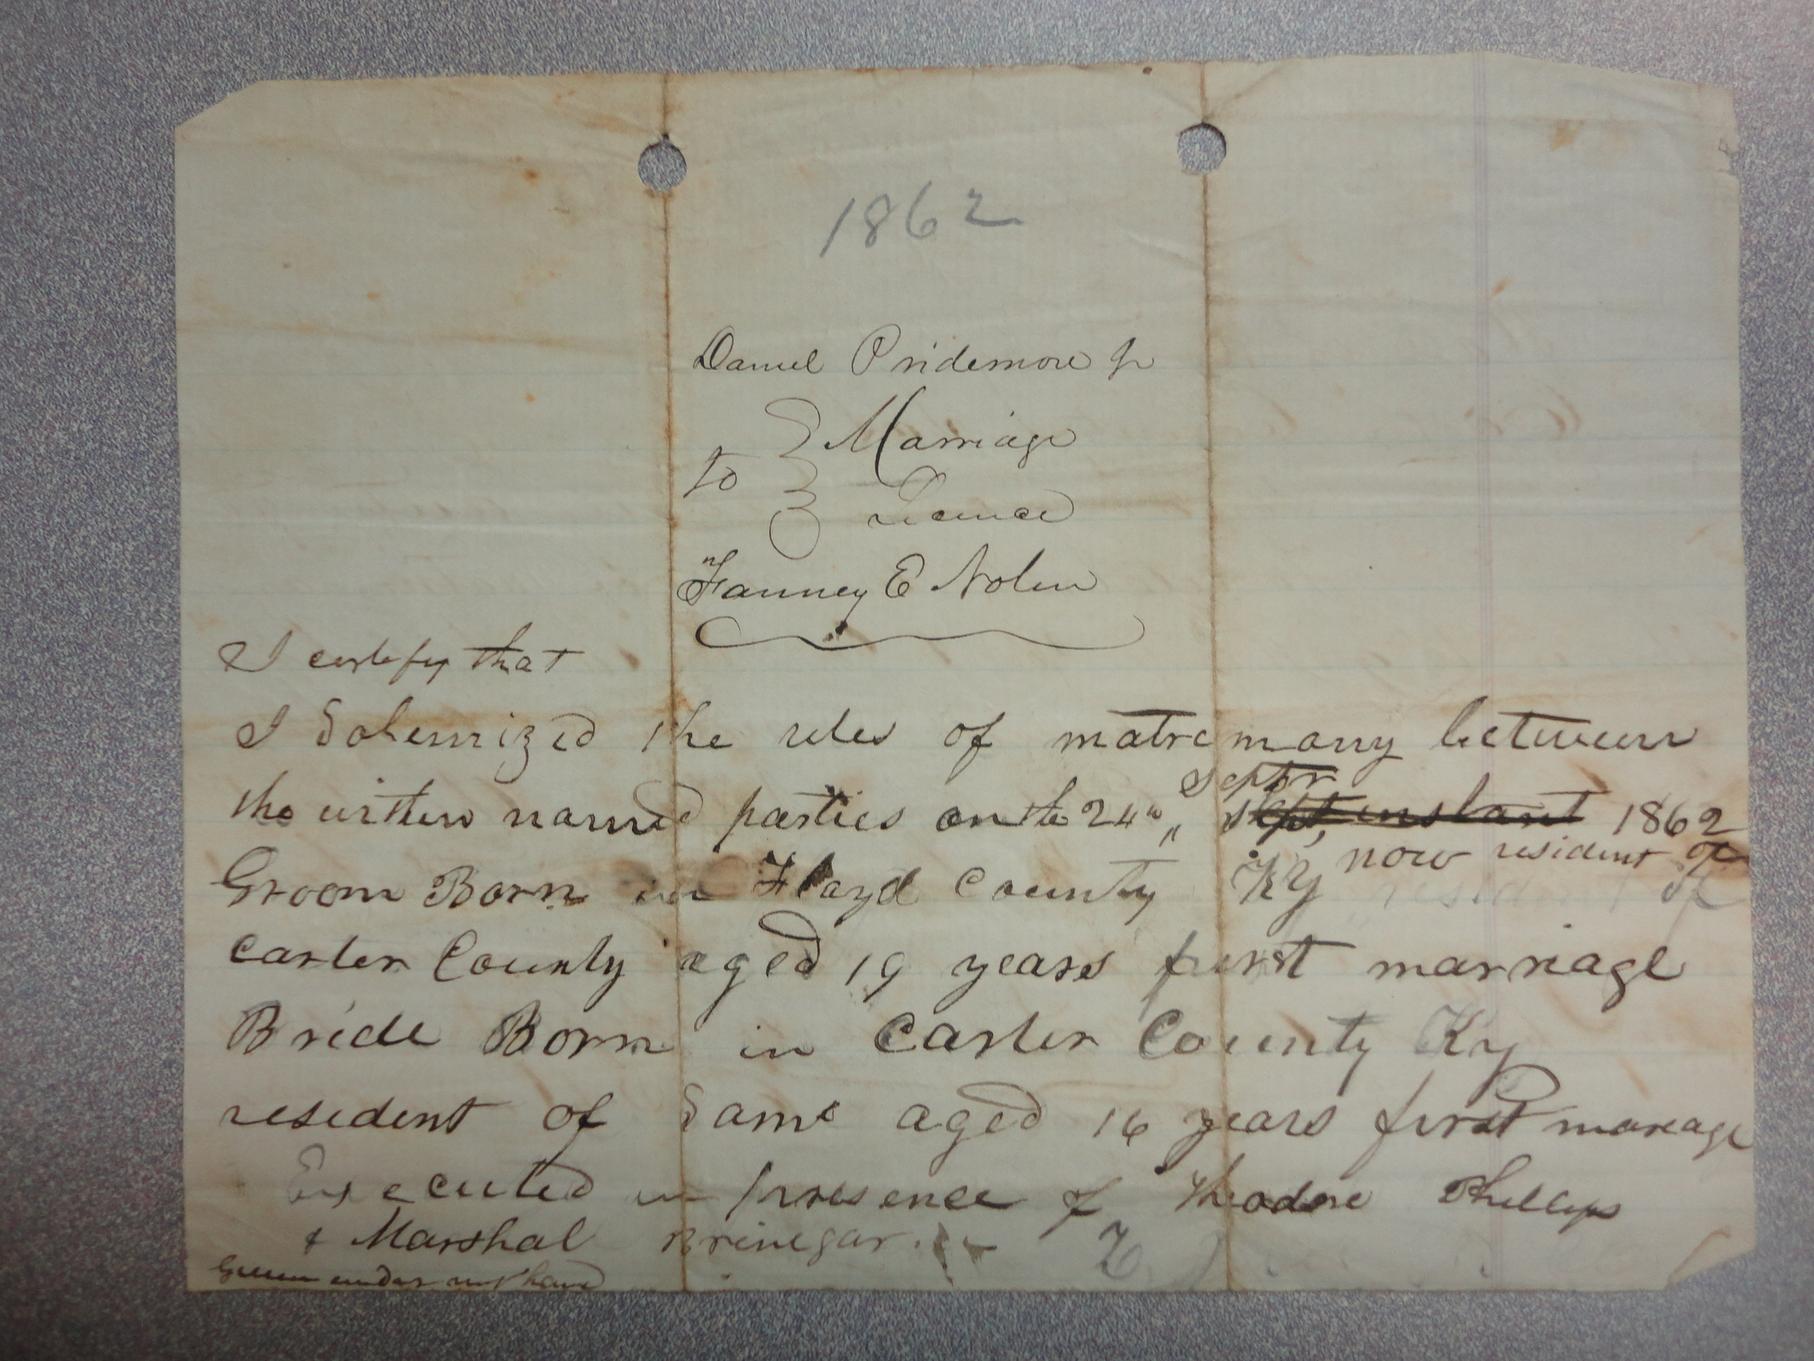 1862
Daniel Pridemore Jr
Marriage
to
Licence
Fanney E Nolen
I certify that
I Solemnized the rites of matrimony between
Septbr
the within named parties on the 24th " Sept, instant 1862
now resident of
Groom Born in Floyd County Ky resident of
Carter County aged 19 years furst marriage
Bride Born in Carter County Ky
resident of Same aged 16 years first marage
Executed in presence of Theodore Phillips
& Marshal Brinegar.
Given under my hand